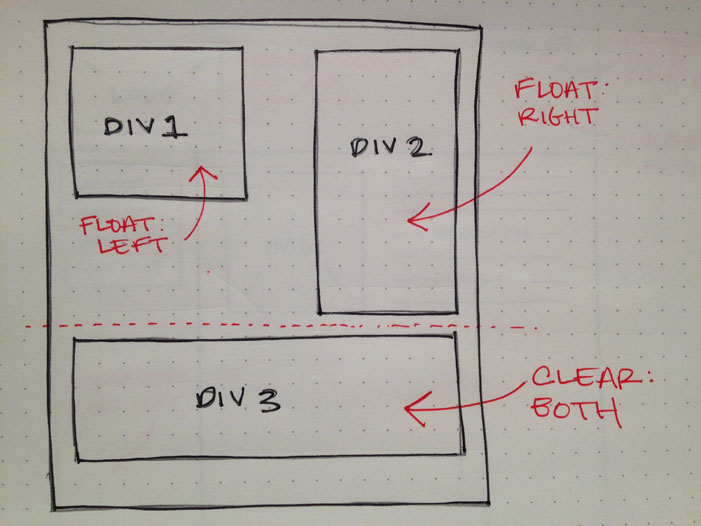 DIV 1
FLOAT:
LEFT
DIV 2
FLOAT:
RIGHT
DIV 3
CLEAR:
BOTH